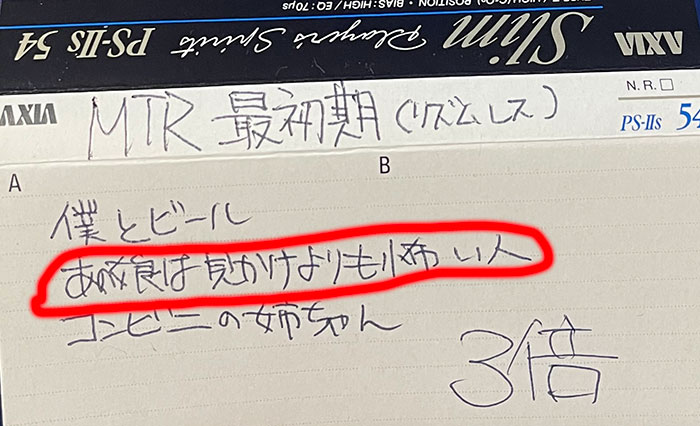 POSITION • BIAS: HIGH / EQ: 70μs
AXIA Slim Player's Spirits PS-IIs 54
AXIA MTR 最初期(リズムレス)
N.R.□
PS-IIs 54
A B
僕とビール
あの娘は見かけよりも怖い人
コンビニの姉ちゃん
3倍